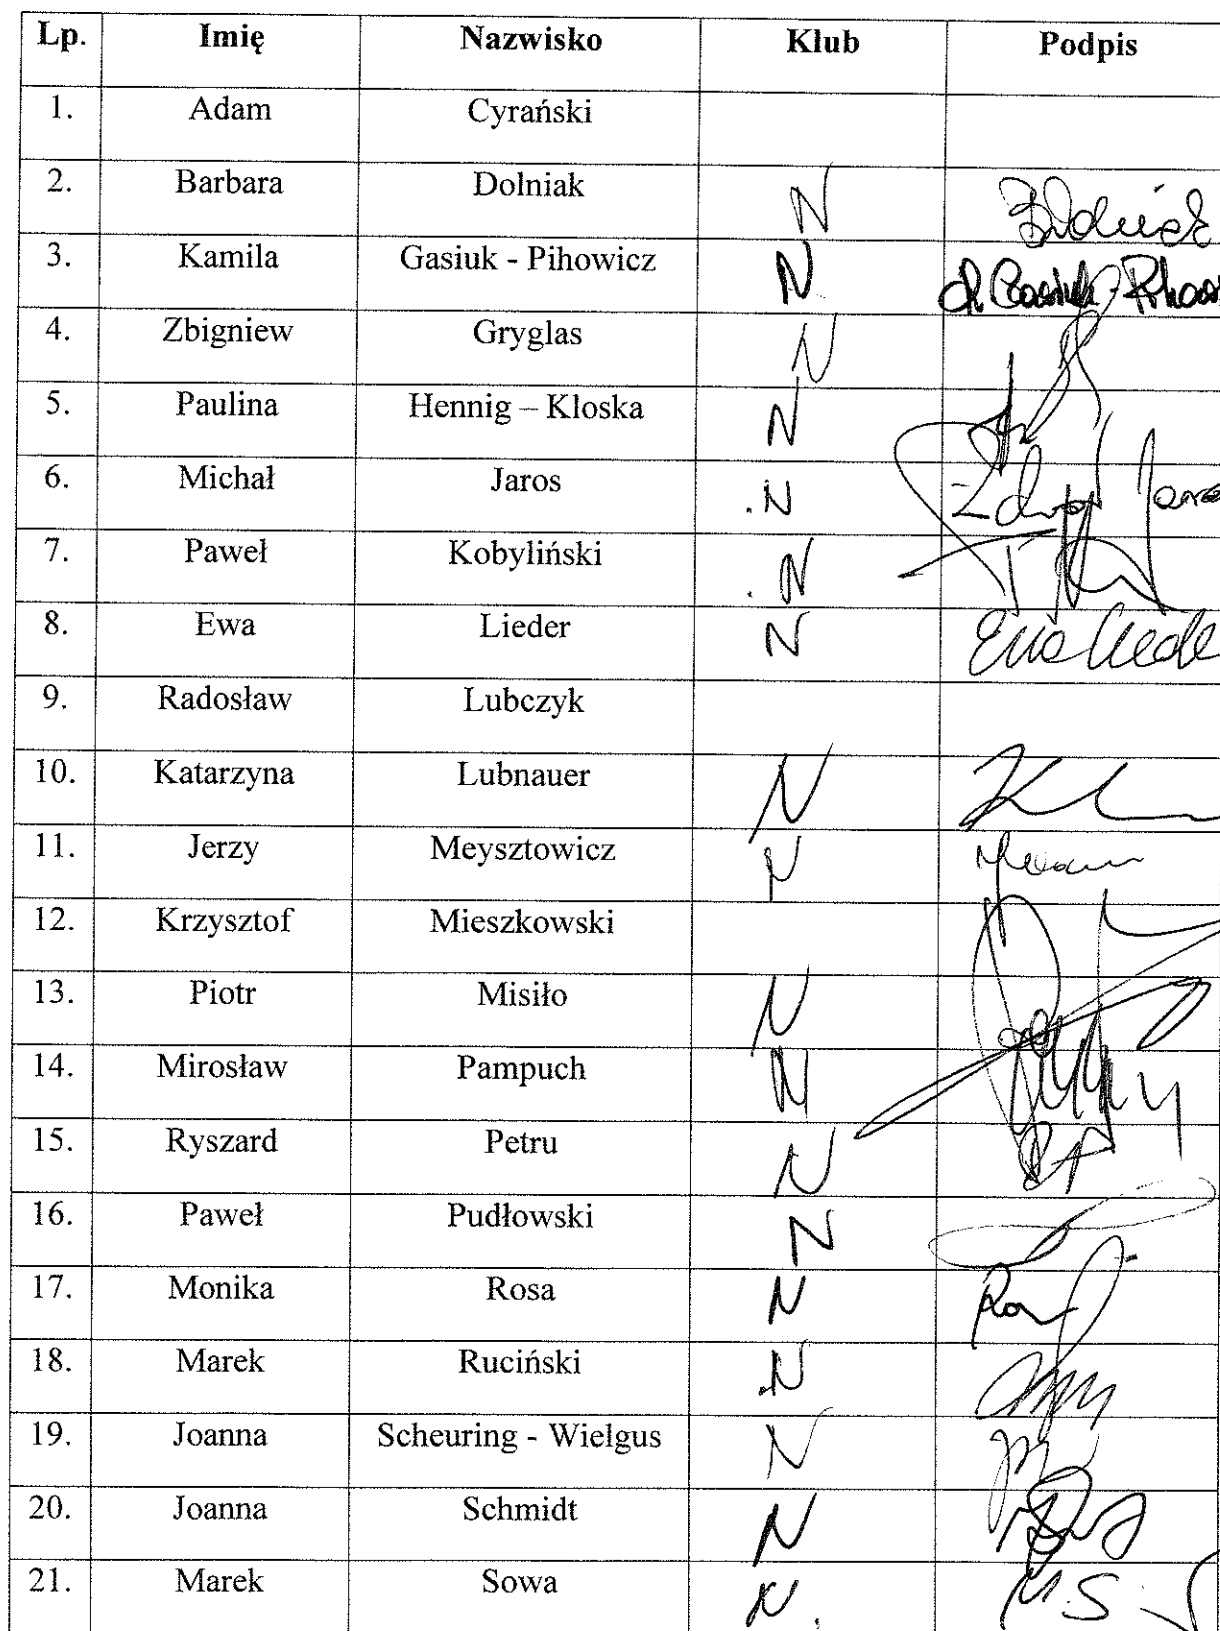 Lp. Imię Nazwisko Klub Podpis
1. Adam Cyrański
2. Barbara Dolniak N
3. Kamila Gasiuk - Pihowicz N
4. Zbigniew Gryglas N
5. Paulina Hennig – Kloska N
6. Michał Jaros N
7. Paweł Kobyliński N
8. Ewa Lieder N
9. Radosław Lubczyk
10. Katarzyna Lubnauer N
11. Jerzy Meysztowicz N
12. Krzysztof Mieszkowski
13. Piotr Misiło N
14. Mirosław Pampuch N
15. Ryszard Petru N
16. Paweł Pudłowski N
17. Monika Rosa N
18. Marek Ruciński N
19. Joanna Scheuring - Wielgus N
20. Joanna Schmidt N
21. Marek Sowa N. M.S